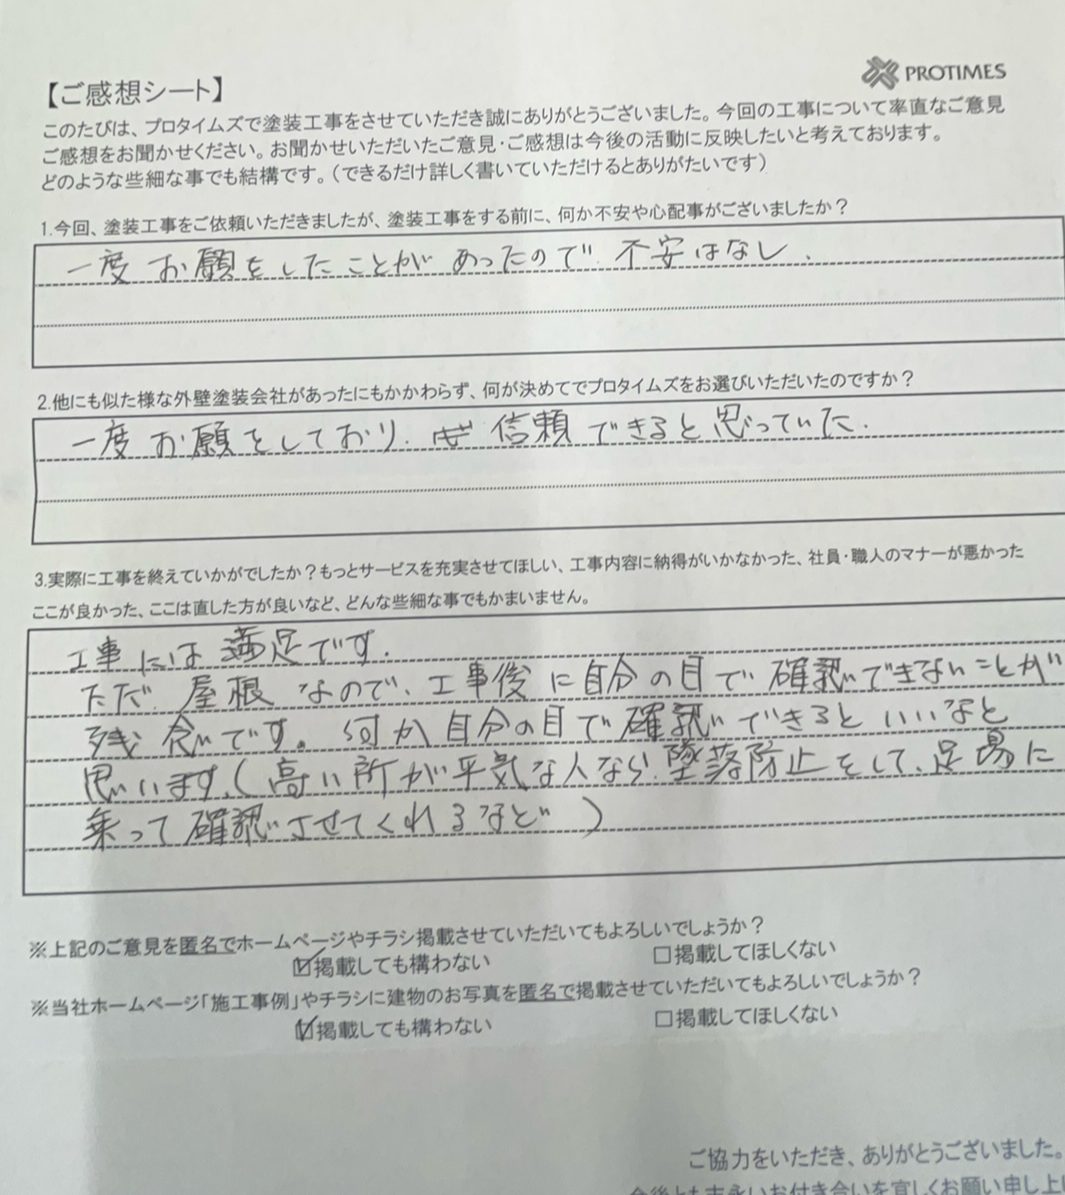 PROTIMES
【ご感想シート】
このたびは、プロタイムズで塗装工事をさせていただき誠にありがとうございました。今回の工事について率直なご意見
ご感想をお聞かせください。お聞かせいただいたご意見・ご感想は今後の活動に反映したいと考えております。
どのような些細な事でも結構です。(できるだけ詳しく書いていただけるとありがたいです)
1.今回、塗装工事をご依頼いただきましたが、塗装工事をする前に、何か不安や心配事がございましたか?
一度お願をしたことがあったので不安はなし.
2.他にも似た様な外壁塗装会社があったにもかかわらず、何が決めてでプロタイムズをお選びいただいたのですか?
一度お願をしており. 信頼できると思っていた.
3.実際に工事を終えていかがでしたか?もっとサービスを充実させてほしい、工事内容に納得がいかなかった、社員・職人のマナーが悪かった
ここが良かった、ここは直した方が良いなど、どんな些細な事でもかまいません。
工事には満足です.
ただ. 屋根なので、工事後に自分の目で確認できないことが
残念です。何か自分の目で確認できるといいなと
思います.(高い所が平気な人なら.墜落防止をして、足場に
乗って確認させてくれるなど)
※上記のご意見を匿名でホームページやチラシ掲載させていただいてもよろしいでしょうか?
☑掲載しても構わない □掲載してほしくない
※当社ホームページ「施工事例」やチラシに建物のお写真を匿名で掲載させていただいてもよろしいでしょうか?
☑掲載しても構わない □掲載してほしくない
ご協力をいただき、ありがとうございました。
今後とも末永いお付き合いを宜しくお願い申し上